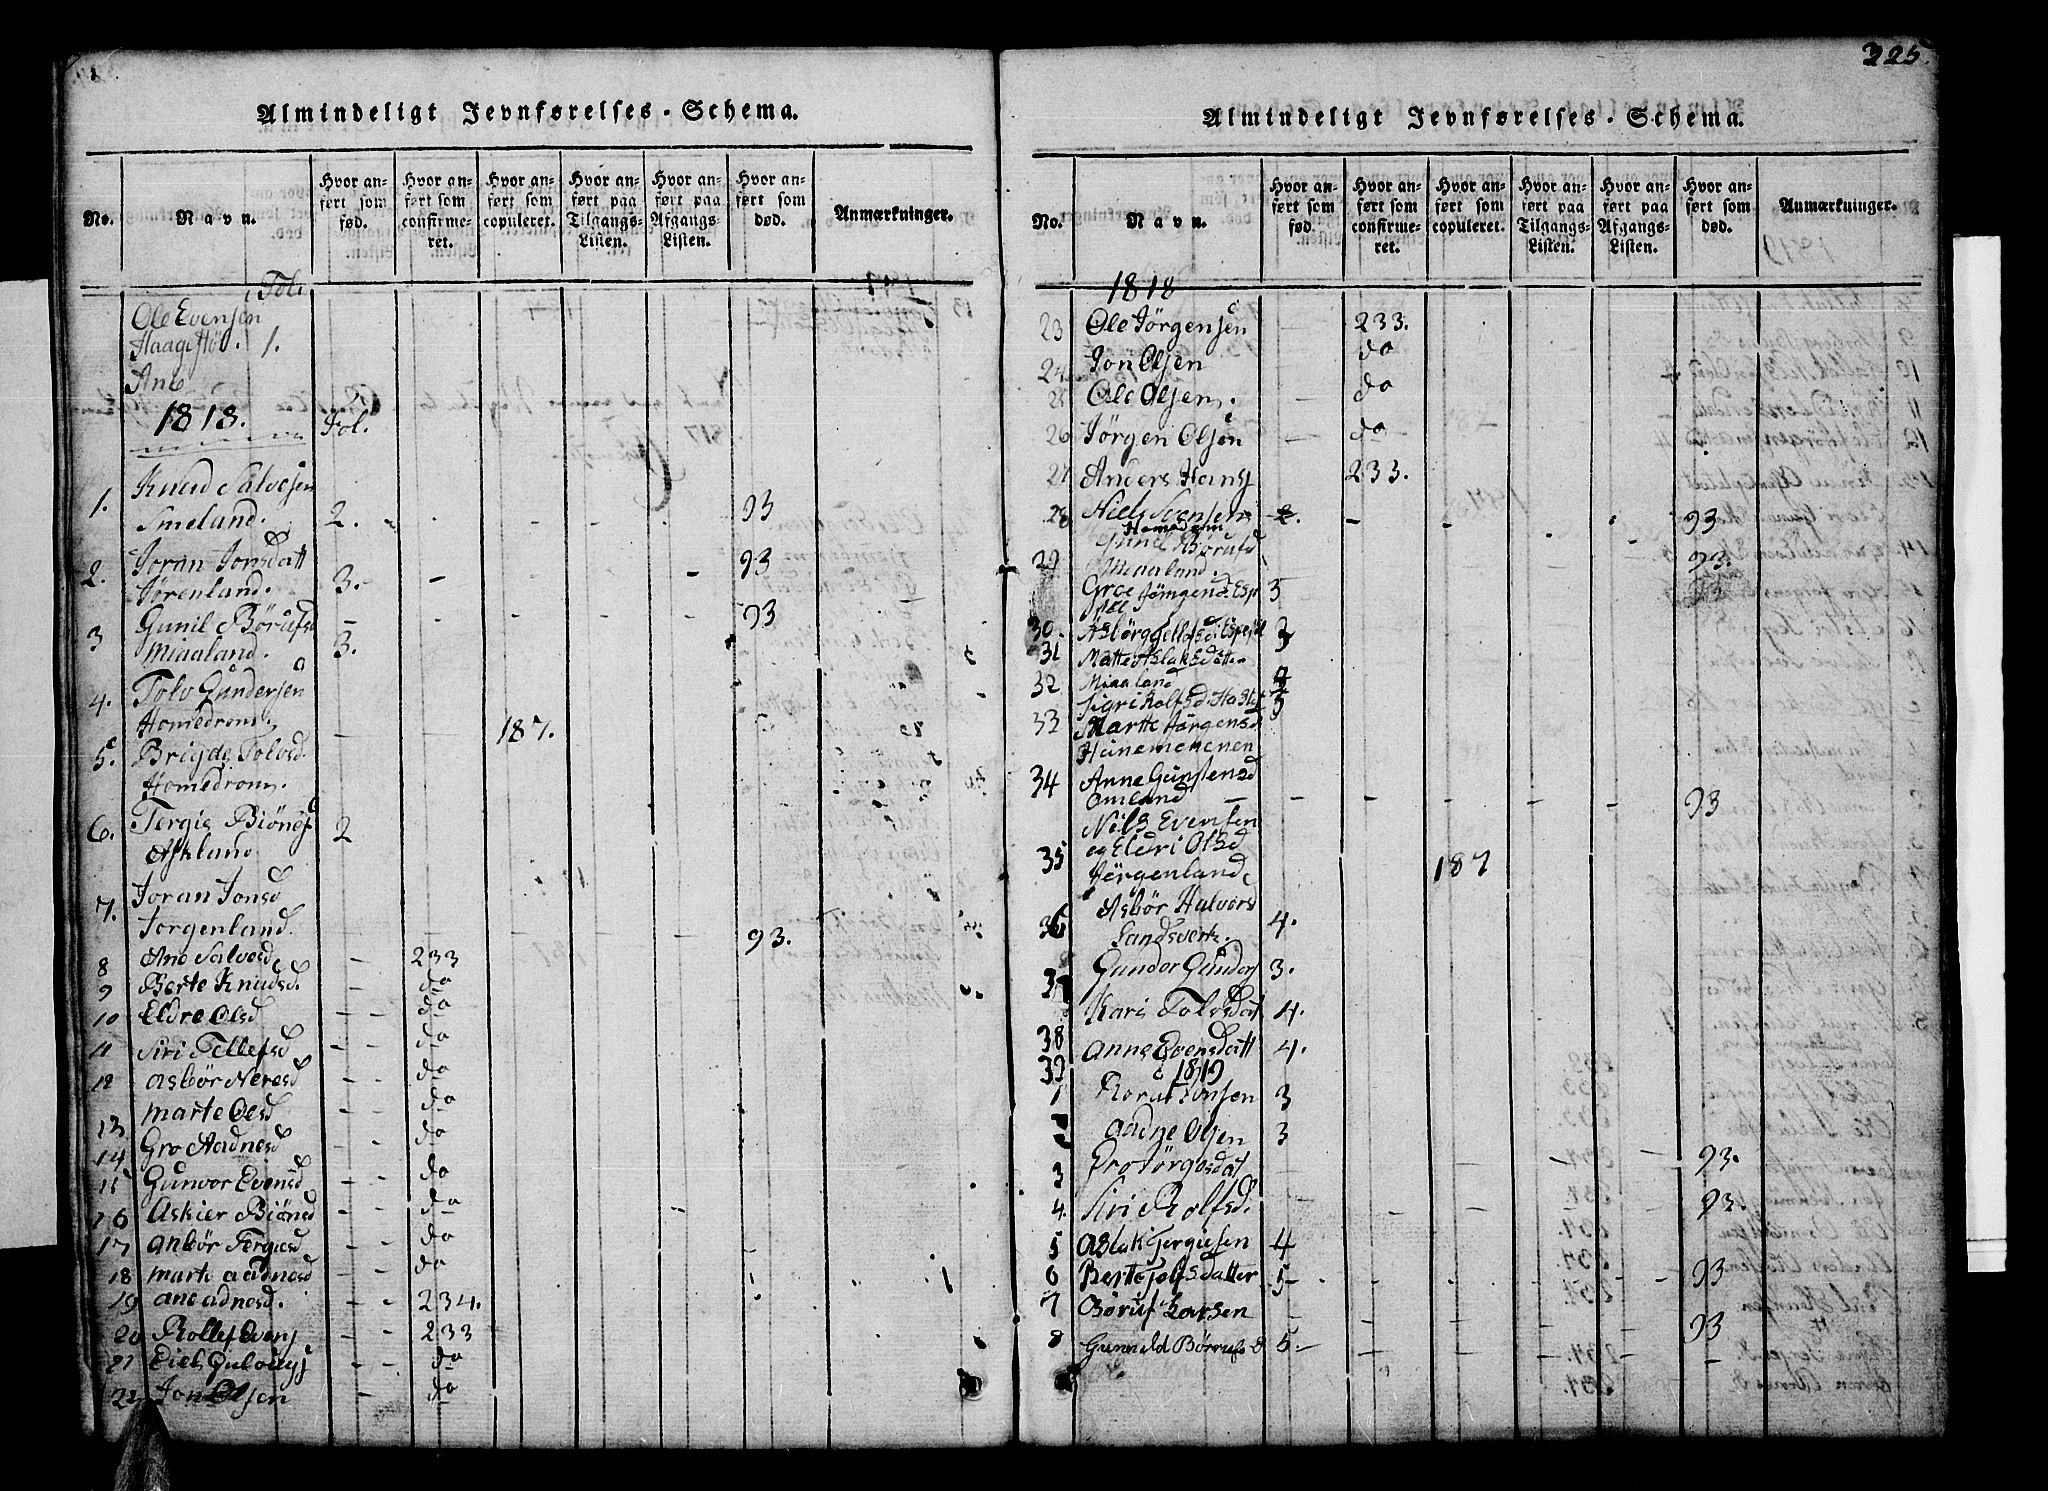 Almindeligt Jevnførelses-Schema.
No.
Navn.
Hvor anført som fød.
Hvor anført som confirmeret.
Hvor anført som copuleret.
Hvor anført paa Tilgangs-Listen.
Hvor anført paa Afgangs-Listen.
Hvor anført som død.
Anmærkninger.
Fol.
Ole Evensen
Haagestøl. 1.
Ane
1818. Fol.
Knud Salvesen
1. Smeland. 2. 93
Joran Jonsdatt 93
2. Jørenland. 3.
Gunil Børufsd 93
3 Miaaland. 3.
Tolv Gundersen
4. Homedrom.
187.
5. Brigde Tolvsd.
Homedrom.
6. Tergis Biøns 2
Askland.
Joran Jonsd
7. Jorgenland. 93.
8 Ane Salvesd. 233
9 Berte Knudsd. do
10 Eldre Olsd do
11 Siri Tellefsd do
12 Asbør Neresd do
13 Marte Olsd do
14 Gro Aadnesd do
15 Gunvor Evensd do
16 Askier Biønsd do
17 Anbør Tergiesd do
18 Marte Aadnesd do
19 Ane Adnesd. 234.
20 Rollef Evens 233
21 do
22 Jon Olsen do
325.
Almindeligt Jevnførelses-Schema.
No.
Navn.
Hvor anført som fød.
Hvor anført som confirmeret.
Hvor anført som copuleret.
Hvor anført paa Tilgangs-Listen.
Hvor anført paa Afgangs-Listen.
Hvor anført som død.
Anmærkninger.
1818
23 Ole Jörgensen 233.
24 Jon Olsen do
25 Ole Olsen. do
26 Jörgen Olsen do
27 Anders Hans 233.
28 Niels Svensen 2. 93
Homedrom
29 Gunel Børufsd 93.
Miaaland.
Groe 5
30.
31 3
Matte Aslaksdatter
32 Miaaland
Sigri Rolfsd 5
33 Marthe Jörgensd
34 Anne Gunstensd
Omland 93
Nils Evensen
35 og Eldri Olsd 187
Jörgenland
36 Asbör Halvors 4.
Sandsverk.
37 Gunder Gunders 3.
Kari Tolvsdat 4.
38
39 Anne Evensdatt 4.
1819
1 Jonsen 3
2 Aadne Olsen 3
3 93.
4. Siri Rolfsd. 93.
5 Aslak Tergiesen 4
6 Berte datter 5 93
7 Børuf Larsen 93
8 Gunnild Børrufs D 5.